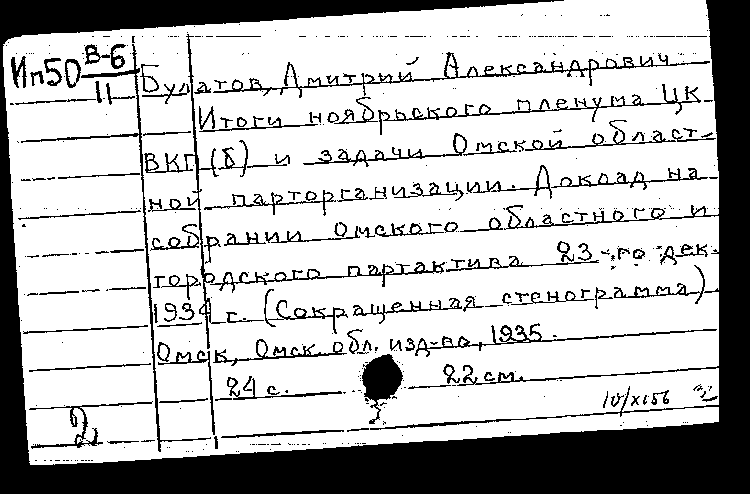 Ип50 В-6/11
Булатов, Дмитрий Александрович
Итоги ноябрьского пленума ЦК
ВКП(б) и задачи Омской област-
ной парторганизации. Доклад на
собрании Омского областного и
городского партактива 23-го дек.
1934 г. (Сокращенная стенограмма)
Омск, Омск. обл. изд-во, 1935.
24 с. 22 см.
2
10/XI56